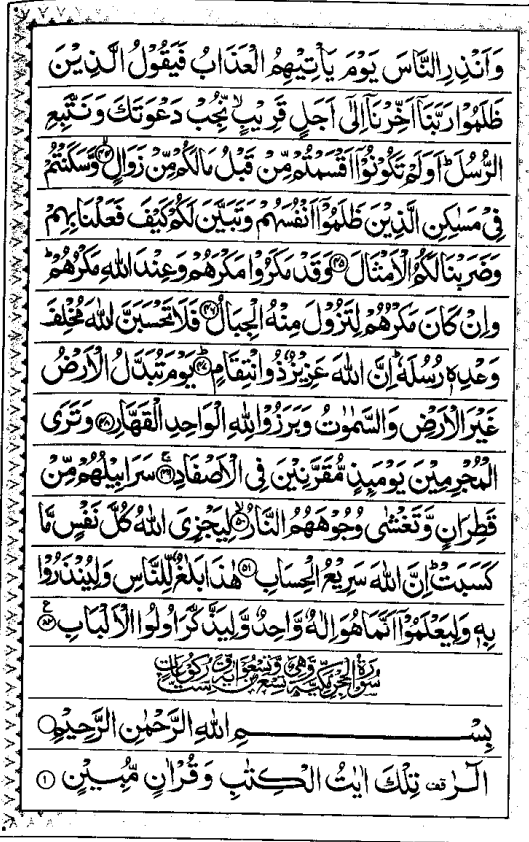 وَاَنْذِرِ النَّاسَ يَوْمَ يَاْتِيْهِمُ الْعَذَابُ فَيَقُوْلُ الَّذِيْنَ
ظَلَمُوْا رَبَّنَاۤ اَخِّرْنَاۤ اِلٰۤى اَجَلٍ قَرِيْبٍ ۙ نُّجِبْ دَعْوَتَكَ وَنَتَّبِعِ
الرُّسُلَ ؕ اَوَلَمْ تَكُوْنُوْۤا اَقْسَمْتُمْ مِّنْ قَبْلُ مَا لَكُمْ مِّنْ زَوَالٍ ۙ۴۴ وَّسَكَنْتُمْ
فِيْ مَسٰكِنِ الَّذِيْنَ ظَلَمُوْۤا اَنْفُسَهُمْ وَتَبَيَّنَ لَكُمْ كَيْفَ فَعَلْنَا بِهِمْ
وَضَرَبْنَا لَكُمُ الْاَمْثَالَ ۴۵ وَقَدْ مَكَرُوْا مَكْرَهُمْ وَعِنْدَ اللّٰهِ مَكْرُهُمْ ؕ
وَاِنْ كَانَ مَكْرُهُمْ لِتَزُوْلَ مِنْهُ الْجِبَالُ ۴۶ فَلَا تَحْسَبَنَّ اللّٰهَ مُخْلِفَ
وَعْدِهٖ رُسُلَهٗ ؕ اِنَّ اللّٰهَ عَزِيْزٌ ذُو انْتِقَامٍ ؕ۴۷ يَوْمَ تُبَدَّلُ الْاَرْضُ
غَيْرَ الْاَرْضِ وَالسَّمٰوٰتُ وَبَرَزُوْا لِلّٰهِ الْوَاحِدِ الْقَهَّارِ ۴۸ وَتَرَى
الْمُجْرِمِيْنَ يَوْمَىِٕذٍ مُّقَرَّنِيْنَ فِي الْاَصْفَادِ ۚ۴۹ سَرَابِيْلُهُمْ مِّنْ
قَطِرَانٍ وَّتَغْشٰى وُجُوْهَهُمُ النَّارُ ۙ۵۰ لِيَجْزِيَ اللّٰهُ كُلَّ نَفْسٍ مَّا
كَسَبَتْ ؕ اِنَّ اللّٰهَ سَرِيْعُ الْحِسَابِ ۵۱ هٰذَا بَلٰغٌ لِّلنَّاسِ وَلِيُنْذَرُوْا
بِهٖ وَلِيَعْلَمُوْۤا اَنَّمَا هُوَ اِلٰهٌ وَّاحِدٌ وَّلِيَذَّكَّرَ اُولُوا الْاَلْبَابِ ۵۲ ع
سورة الحجر مكية وهي تسع وتسعون اية وست ركوعات
بِسْمِ اللّٰهِ الرَّحْمٰنِ الرَّحِيْمِ
الٓرٰ قف تِلْكَ اٰيٰتُ الْكِتٰبِ وَقُرْاٰنٍ مُّبِيْنٍ ۱